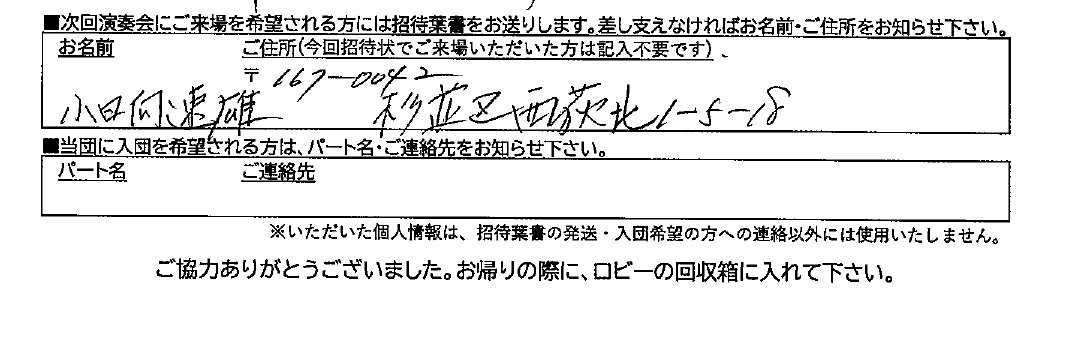 ■次回演奏会にご来場を希望される方には招待葉書をお送りします。差し支えなければお名前・ご住所をお知らせ下さい。
お名前 ご住所(今回招待状でご来場いただいた方は記入不要です)
〒167-0042
小日向速雄 杉並区西荻北1-5-18
■当団に入団を希望される方は、パート名・ご連絡先をお知らせ下さい。
パート名 ご連絡先
※いただいた個人情報は、招待葉書の発送・入団希望の方への連絡以外には使用いたしません。
ご協力ありがとうございました。お帰りの際に、ロビーの回収箱に入れて下さい。